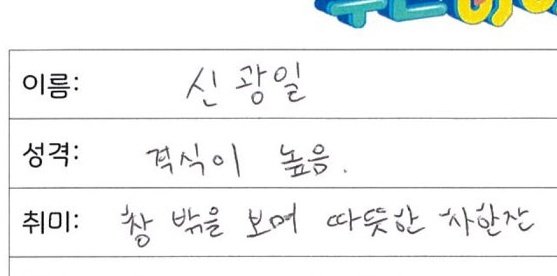 이름: 신광일
성격: 격식이 높음.
취미: 창 밖을 보며 따뜻한 차한잔